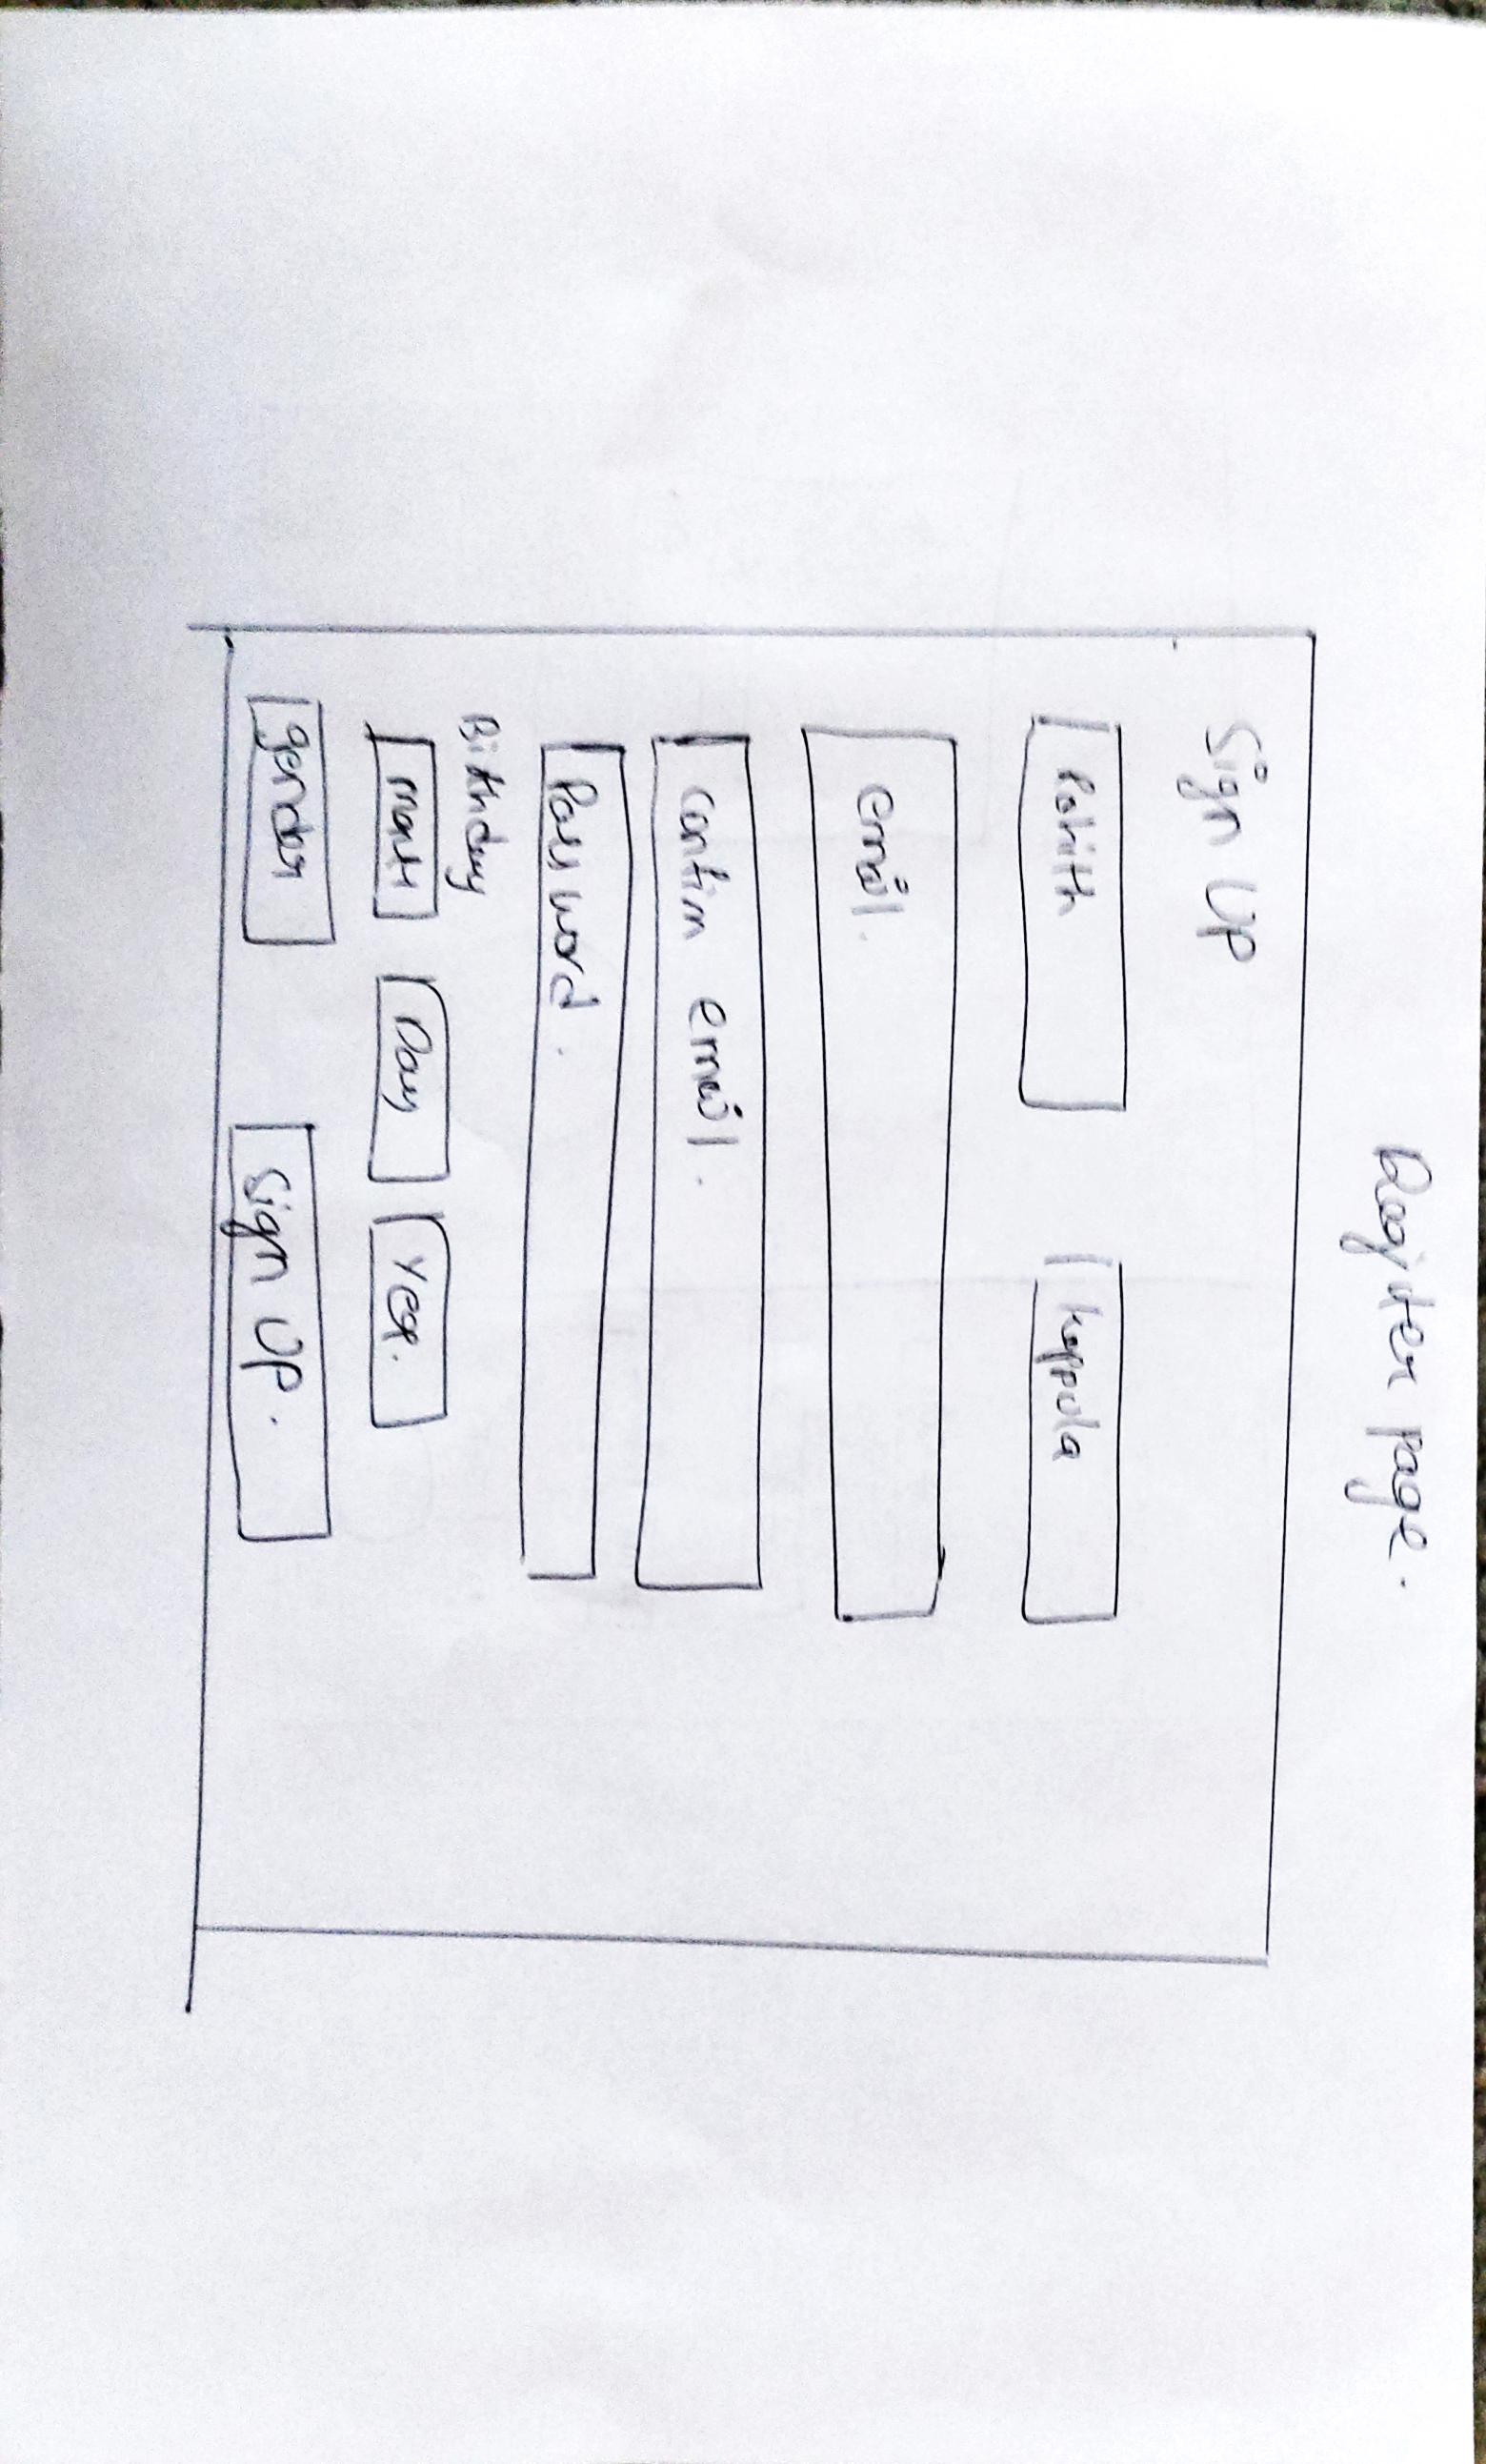 Register page.
Sign UP
Rohith Koppula
email.
Confim email.
Password.
Bithday
Month Day Year.
gender Sign UP.